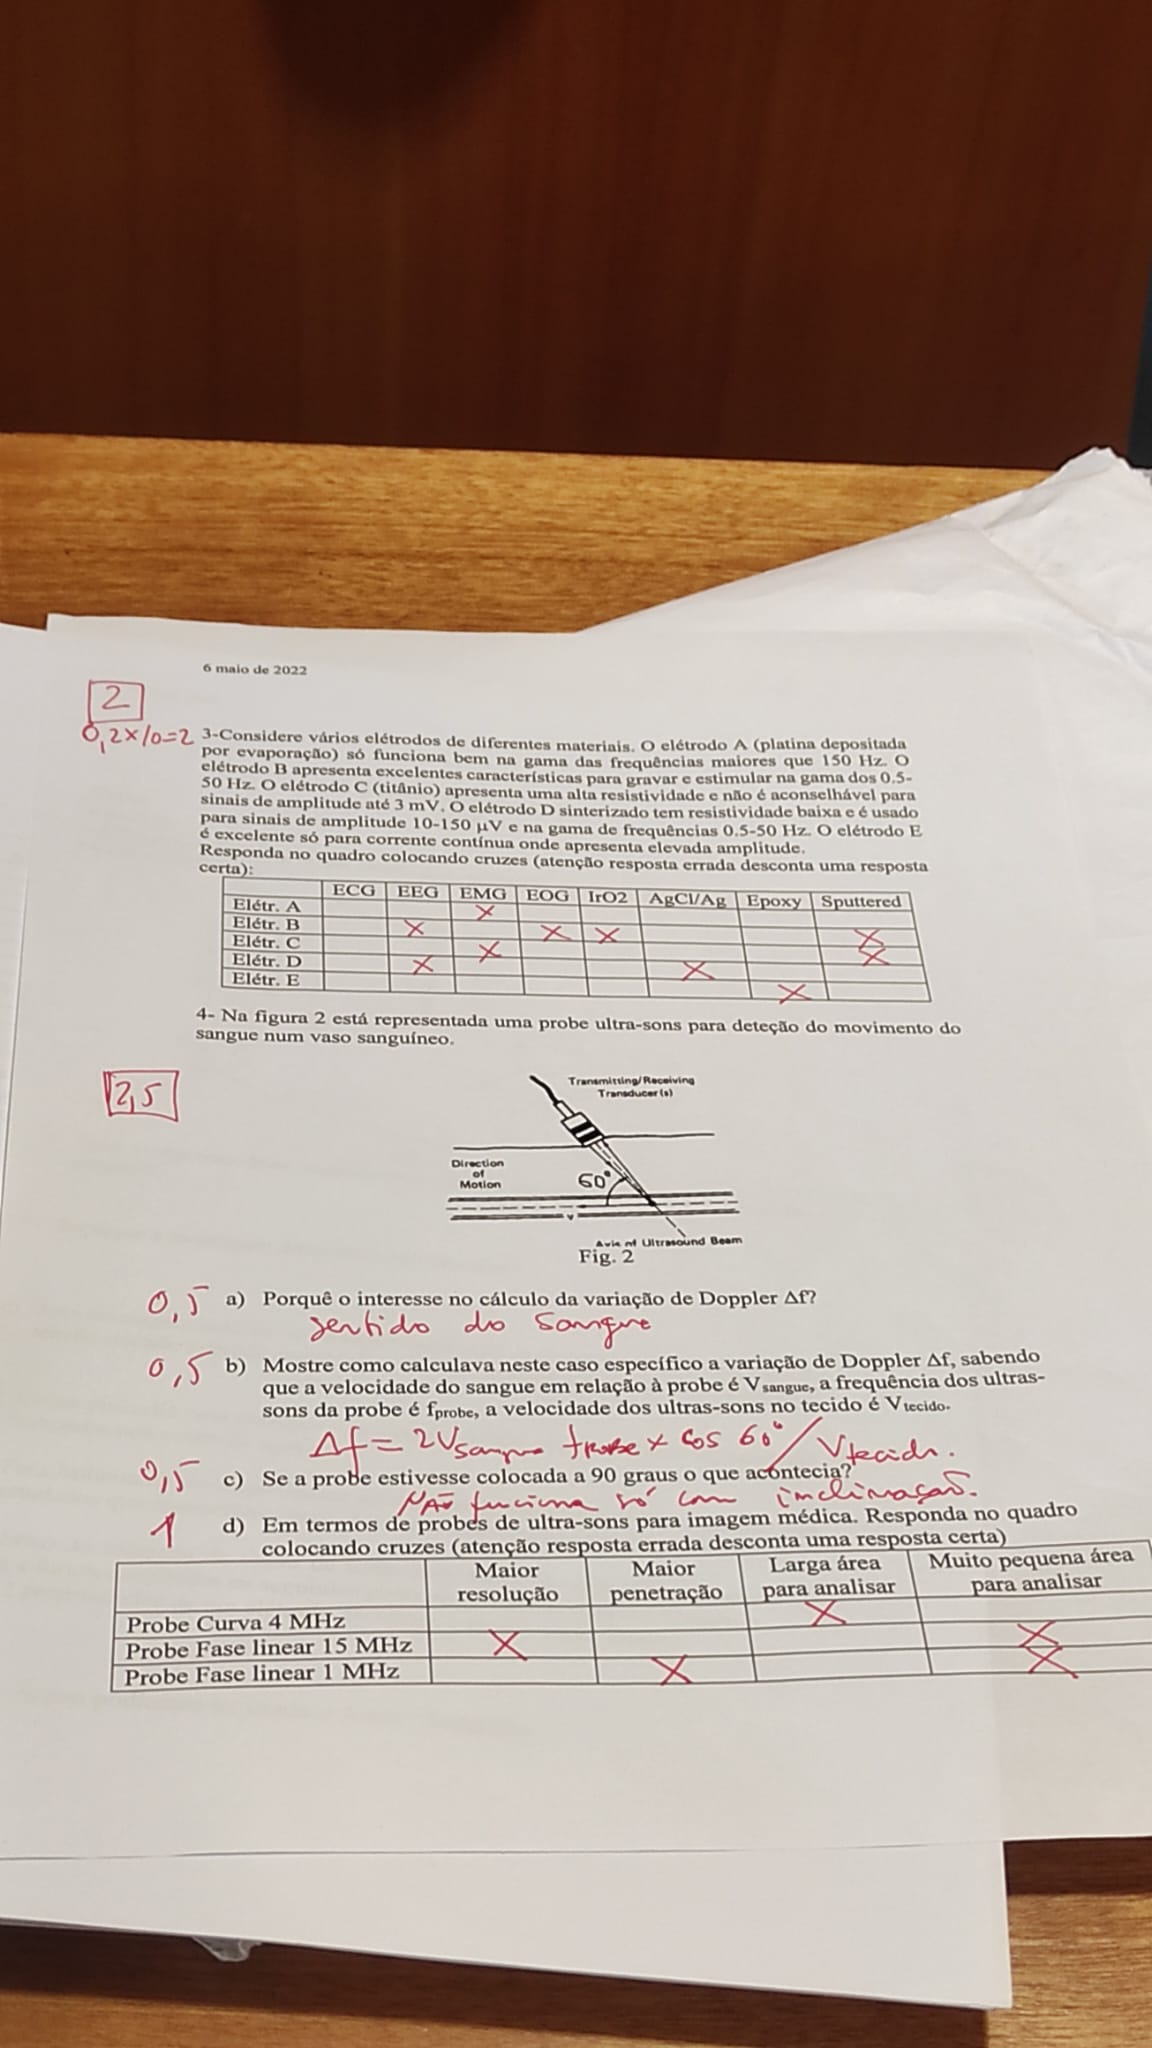 6 maio de 2022
2
0,2x10=2
3-Considere vários elétrodos de diferentes materiais. O elétrodo A (platina depositada
por evaporação) só funciona bem na gama das frequências maiores que 150 Hz. O
elétrodo B apresenta excelentes características para gravar e estimular na gama dos 0.5-
50 Hz. O elétrodo C (titânio) apresenta uma alta resistividade e não é aconselhável para
sinais de amplitude até 3 mV. O elétrodo D sinterizado tem resistividade baixa e é usado
para sinais de amplitude 10-150 µV e na gama de frequências 0.5-50 Hz. O elétrodo E
é excelente só para corrente contínua onde apresenta elevada amplitude.
Responda no quadro colocando cruzes (atenção resposta errada desconta uma resposta
certa):
ECG EEG EMG EOG IrO2 AgCl/Ag Epoxy Sputtered
Elétr. A X
Elétr. B X X X X
Elétr. C X X
Elétr. D X X
Elétr. E X
4- Na figura 2 está representada uma probe ultra-sons para deteção do movimento do
sangue num vaso sanguíneo.
2,5
Transmitting/Receiving
Transducer(s)
Direction
of
Motion
60°
v
Axis of Ultrasound Beam
Fig. 2
0,5 a) Porquê o interesse no cálculo da variação de Doppler Δf?
sentido do sangue
0,5 b) Mostre como calculava neste caso específico a variação de Doppler Δf, sabendo
que a velocidade do sangue em relação à probe é Vsangue, a frequência dos ultras-
sons da probe é fprobe, a velocidade dos ultras-sons no tecido é Vtecido.
Δf = 2Vsangue fprobe x cos 60°/Vtecido.
0,5 c) Se a probe estivesse colocada a 90 graus o que acontecia?
NÃO funciona só com inclinação.
1 d) Em termos de probes de ultra-sons para imagem médica. Responda no quadro
colocando cruzes (atenção resposta errada desconta uma resposta certa)
Maior Maior Larga área Muito pequena área
resolução penetração para analisar para analisar
Probe Curva 4 MHz X
Probe Fase linear 15 MHz X X
Probe Fase linear 1 MHz X X